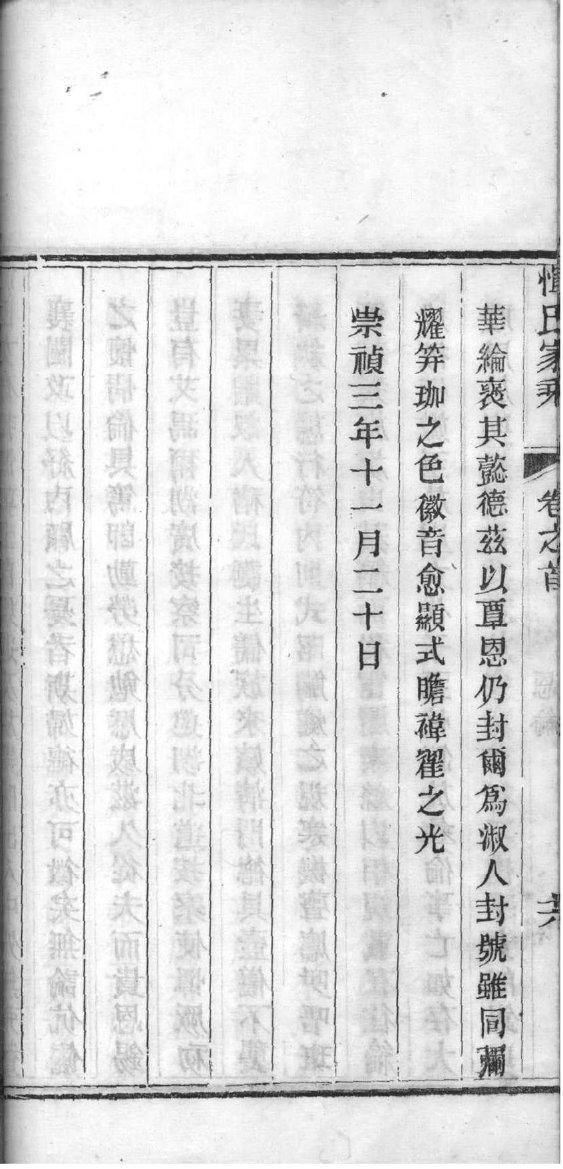 惲氏家乘
卷之首
六
華綸褒其懿德茲以覃恩仍封爾爲淑人封號雖同彌
耀笄珈之色徽音愈顯式瞻褘翟之光
崇禎三年十一月二十日